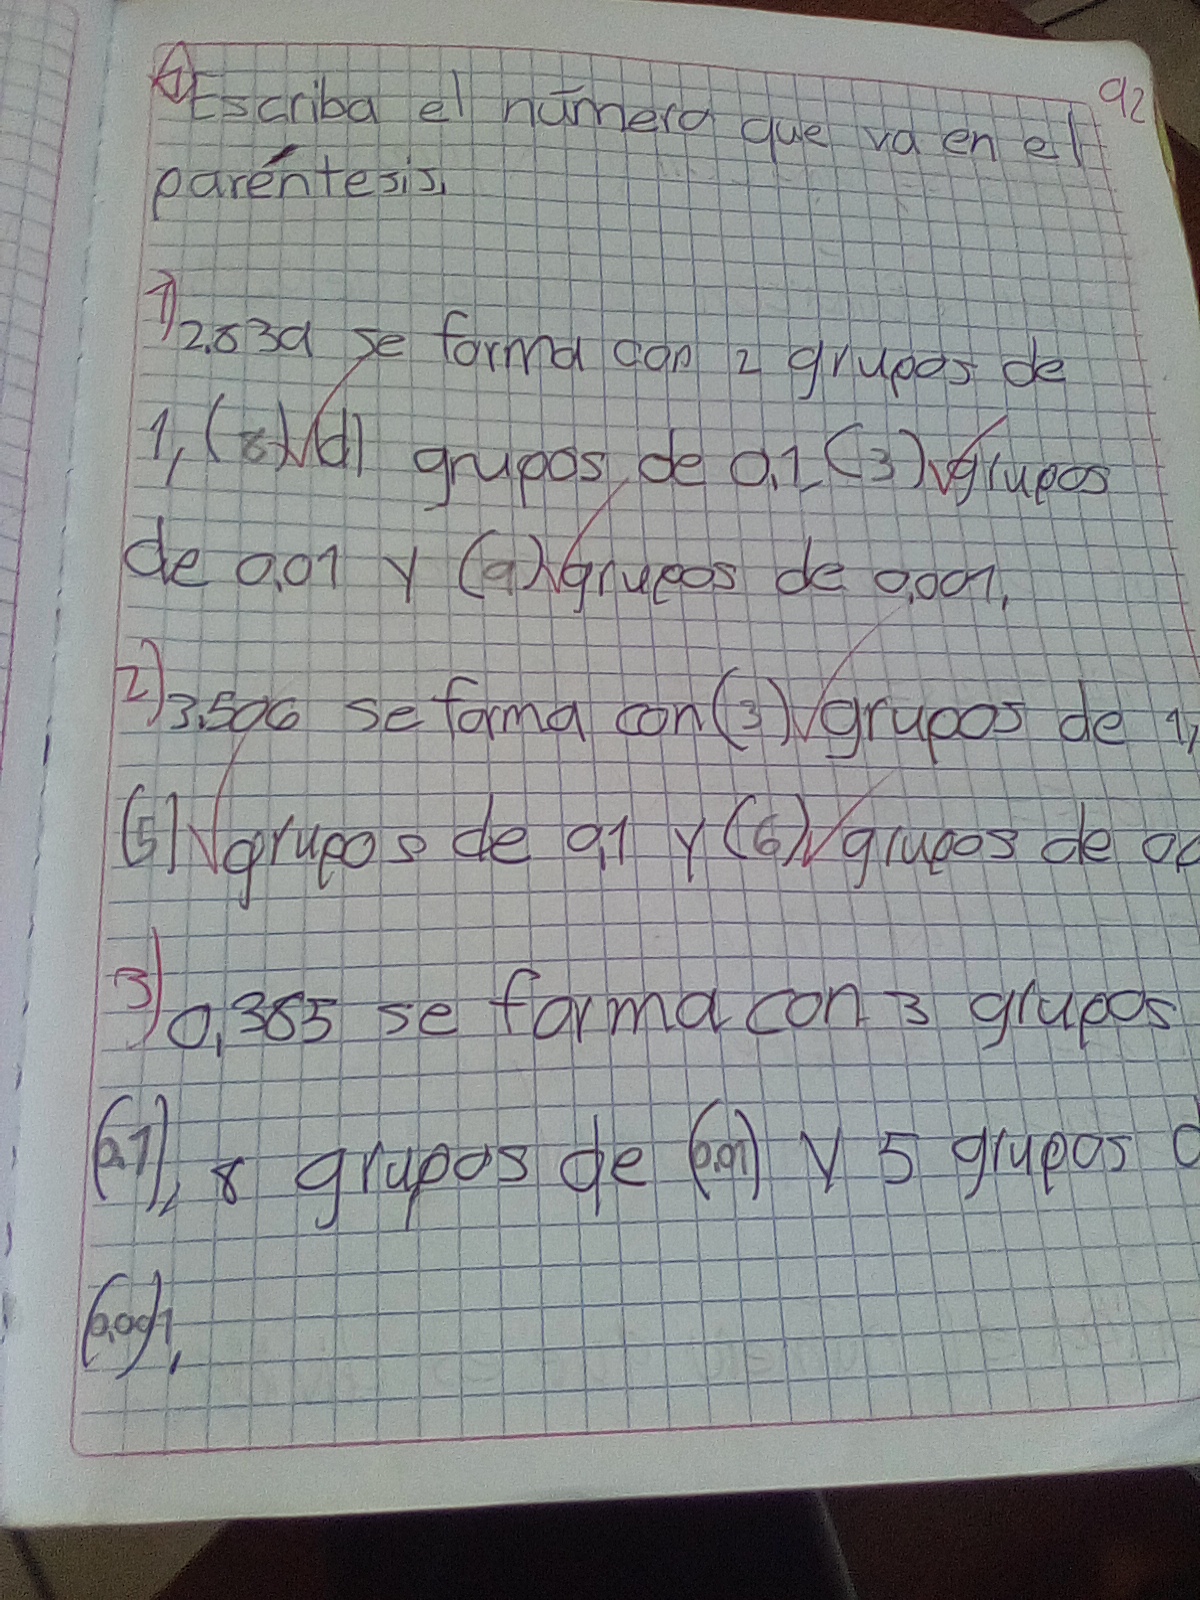 92
A) Escriba el número que va en el
paréntesis.
1) 2.839 se forma con 2 grupos de
1, (8) (d) grupos de 0.1 (3) grupos
de 0.01 y (9) grupos de 0.001.
2) 3.506 se forma con (3) grupos de 1,
(5) grupos de 0.1 y (6) grupos de
3) 0.385 se forma con 3 grupos
(0.1), 8 grupos de (0.01) y 5 grupos d
(0.001).